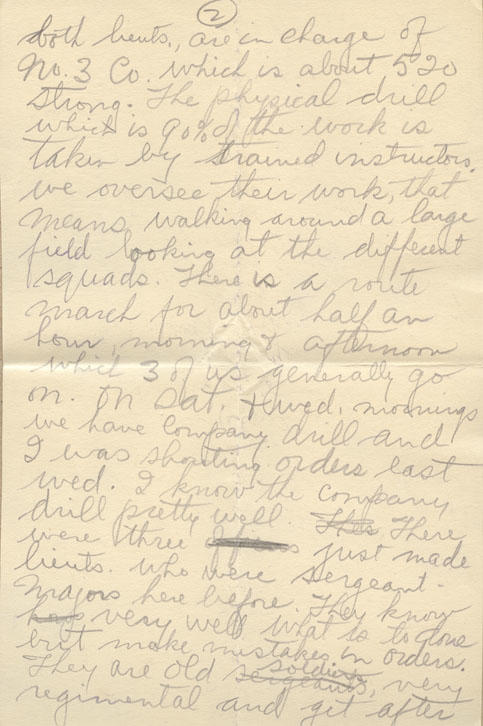 2
both lieuts., are in charge of
No. 3 Co. which is about 520
strong. The physical drill
which is 90% of the work is
taken by trained instructors.
we oversee their work, that
means, walking around a large
field looking at the different
squads. There is a route
march for about half an
hour, morning & afternoon
which 3 of us generally go
on. On Sat. + wed. mornings
we have company drill and
I was shouting orders last
wed. I know the company
drill pretty well. There
were three just made
lieuts. who were sergeant-
majors here before. They know
very well what is to done
but make mistakes in orders.
They are old sergeants soldiers, very
regimental and get after